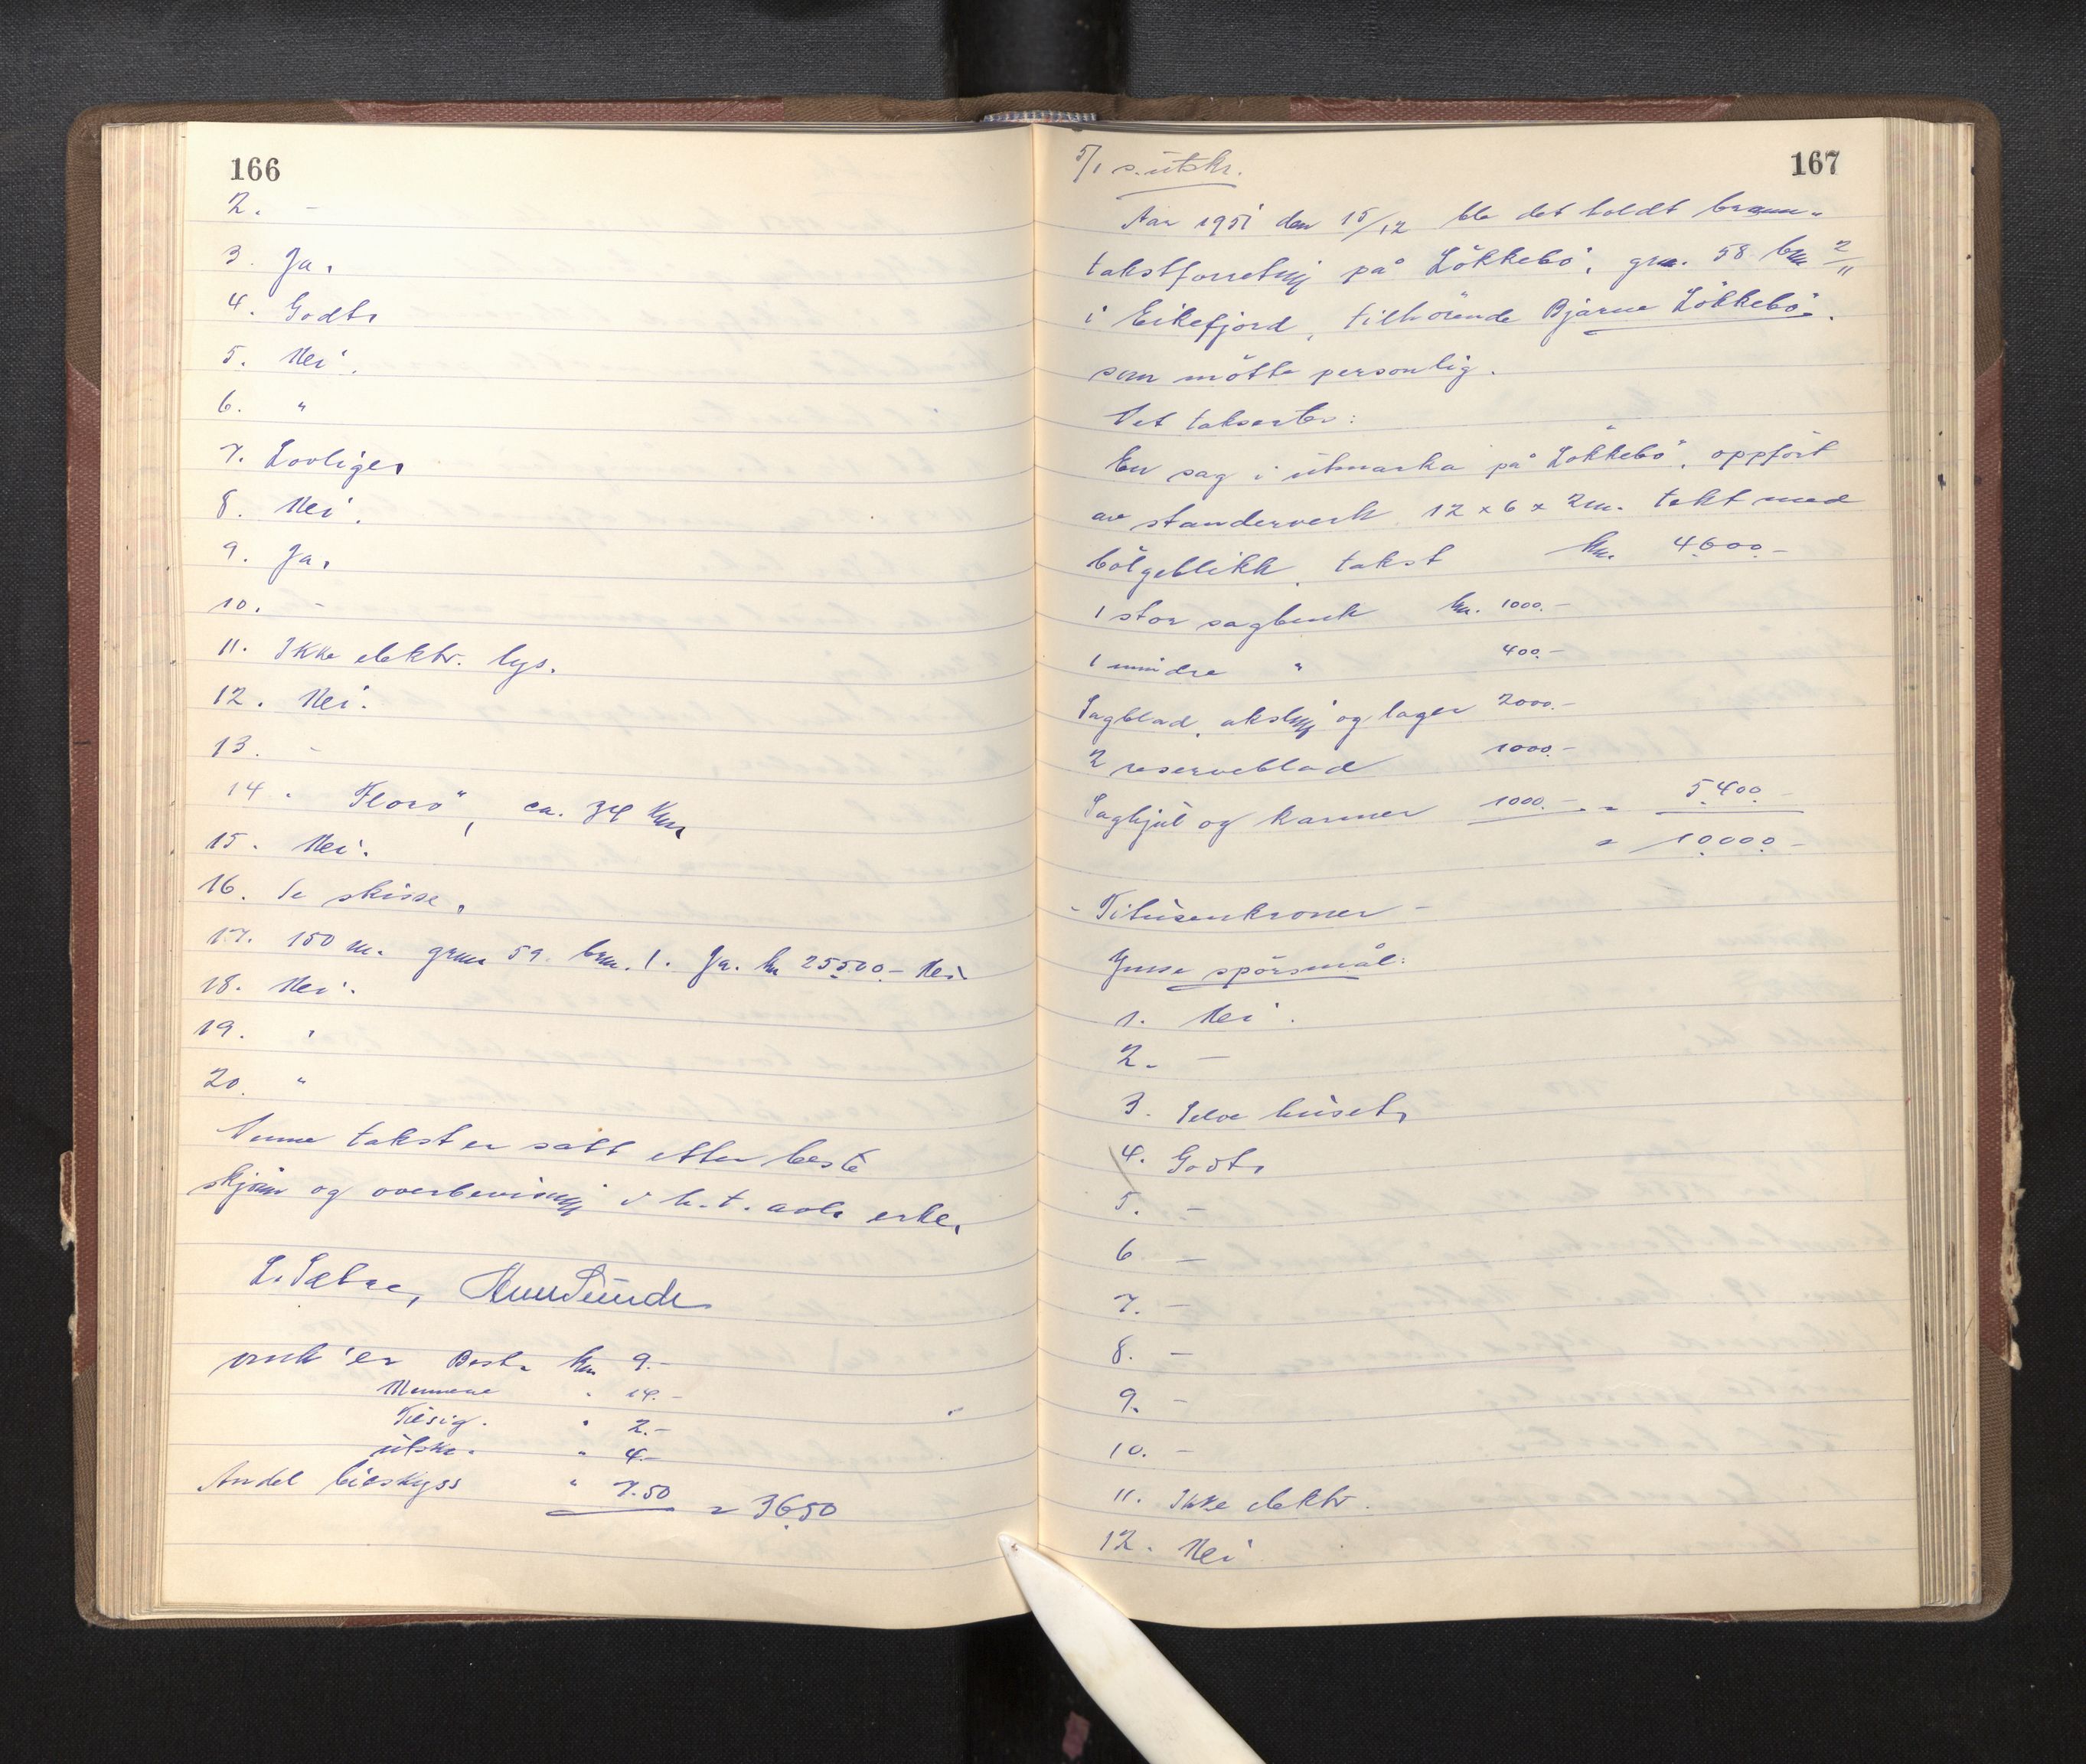 166
2. -
3. Ja.
4. Godt.
5. Nei.
6. "
7. Lovlige.
8. Nei.
9. Ja.
10. -
11. Ikke elektr. lys.
12. Nei.
13. -
14. Florö, ca. 34 km.
15. Nei.
16. Se skisse.
17. 150 m. grnr 59. bnr. 1. Ja. kr 25500.- Nei
18. Nei.
19. "
20. "
Denne takst er satt etter beste
skjön og overbevisning i h.t. avl. erkl.
L. Sætre,
omk'er Best. kr 9.-
Mennene " 14.-
Tilsig. " 2.-
utskr. " 4.-
Andel bilskyss " 7.50 = 36.50
167
5/1 s. utskr.
Aar 1951 den 15/12 ble det holdt brann-
takstforretning på Lökkebö, grn. 58 bnr 2/11
i Eikefjord, tilhörende Bjarne Lökkebö.
som mötte personlig.
Det takseres:
En sag i utmarka på Lökkebö, oppfört
av standerverk 12 x 6 x 2 m. tekt med
bölgeblikk. takst kr. 4.600.-
1 stor sagbenk kr. 1000.-
1 mindre " 400.-
Sagblad, aksling og lager 2000.-
2 reserveblad 1000.-
Saghjul og karmer 1000.- = 5.400.-
= 10.000.-
- Titusenkroner -
Ymse spörsmål:
1. Nei.
2. -
3. Selve huset.
4. Godt.
5. -
6 -
7. -
8. -
9. -
10. -
11. Ikke elektr.
12. Nei